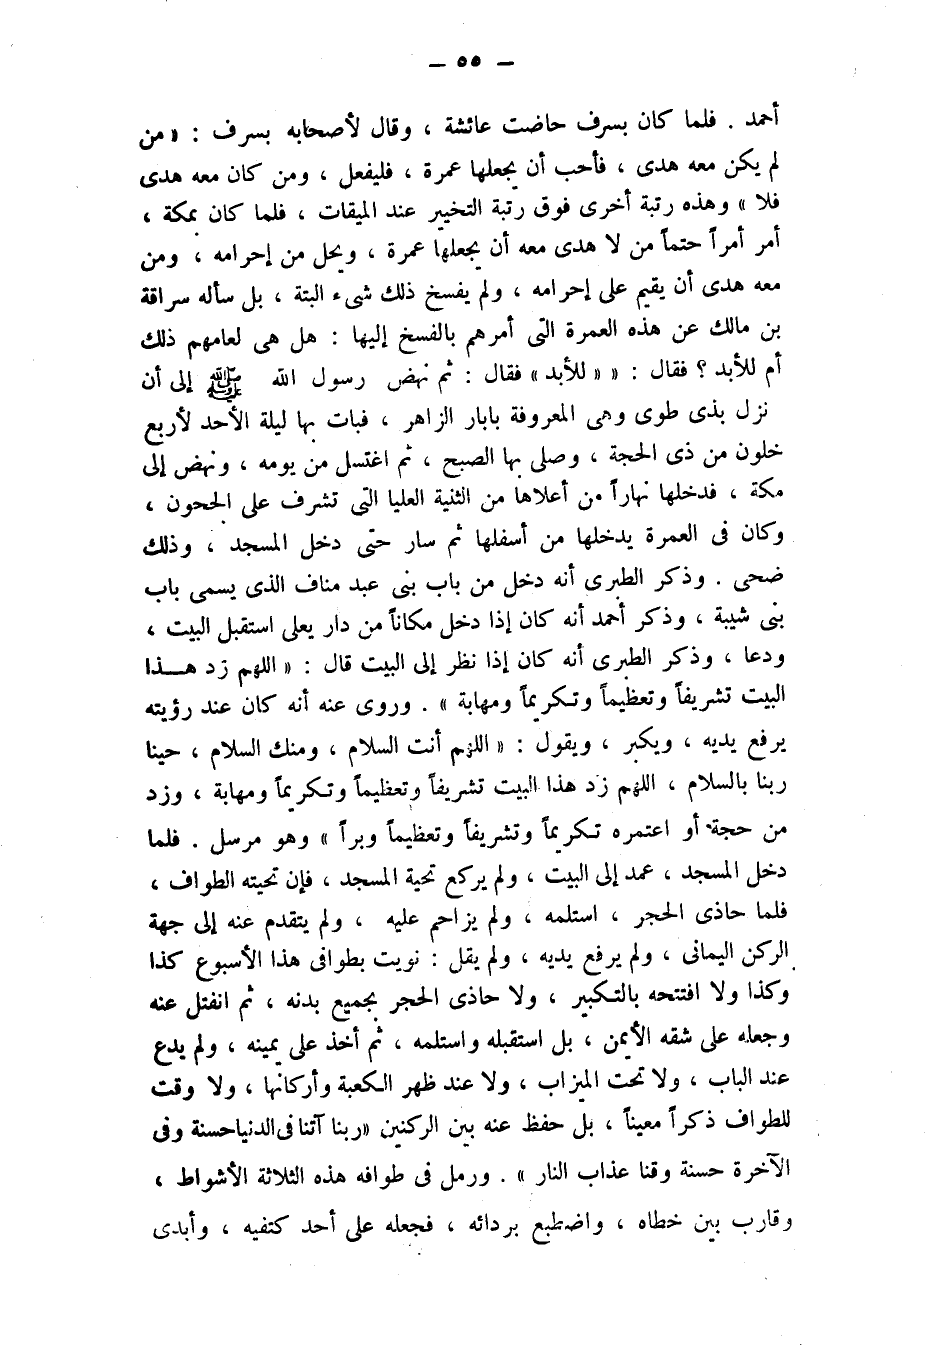 — ٥٥ —
أحمد . فلما كان بسرف حاضت عائشة ، وقال لأصحابه بسرف : « من
لم يكن معه هدى ، فأحب أن يجعلها عمرة ، فليفعل ، ومن كان معه هدى
فلا » وهذه رتبة أخرى فوق رتبة التخيير عند الميقات ، فلما كان بمكة ،
أمر أمراً حتماً من لا هدى معه أن يجعلها عمرة ، ويحل من إحرامه ، ومن
معه هدى أن يقيم على إحرامه ، ولم يفسخ ذلك شىء البتة ، بل سأله سراقة
بن مالك عن هذه العمرة التى أمرهم بالفسخ إليها : هل هى لعامهم ذلك
أم للأبد ؟ فقال : « « للأبد » فقال : ثم نهض رسول الله ﷺ إلى أن
نزل بذى طوى وهى المعروفة بابار الزاهر ، فبات بها ليلة الأحد لأربع
خلون من ذى الحجة ، وصلى بها الصبح ، ثم اغتسل من يومه ، ونهض إلى
مكة ، فدخلها نهاراً من أعلاها من الثنية العليا التى تشرف على الحجون ،
وكان فى العمرة يدخلها من أسفلها ثم سار حتى دخل المسجد ، وذلك
ضحى . وذكر الطبرى أنه دخل من باب بنى عبد مناف الذى يسمى باب
بنى شيبة ، وذكر أحمد أنه كان إذا دخل مكاناً من دار يعلى استقبل البيت ،
ودعا ، وذكر الطبرى أنه كان إذا نظر إلى البيت قال : « اللهم زد هـــذا
البيت تشريفاً وتعظيماً وتكريماً ومهابة » . وروى عنه أنه كان عند رؤيته
يرفع يديه ، ويكبر ، ويقول : « اللهم أنت السلام ، ومنك السلام ، حينا
ربنا بالسلام ، اللهم زد هذا البيت تشريفاً وتعظيماً وتكريماً ومهابة ، وزد
من حجة أو اعتمره تكريماً وتشريفاً وتعظيماً وبراً » وهو مرسل . فلما
دخل المسجد ، عمد إلى البيت ، ولم يركع تحية المسجد ، فإن تحيته الطواف ،
فلما حاذى الحجر ، استلمه ، ولم يزاحم عليه ، ولم يتقدم عنه إلى جهة
الركن اليمانى ، ولم يرفع يديه ، ولم يقل : نويت بطوافى هذا الأسبوع كذا
وكذا ولا افتتحه بالتكبير ، ولا حاذى الحجر بجميع بدنه ، ثم انفتل عنه
وجعله على شقه الأيمن ، بل استقبله واستلمه ، ثم أخذ على يمينه ، ولم يدع
عند الباب ، ولا تحت الميزاب ، ولا عند ظهر الكعبة وأركانها ، ولا وقت
للطواف ذكراً معيناً ، بل حفظ عنه بين الركنين «ربنا آتنا فى الدنيا حسنة وفى
الآخرة حسنة وقنا عذاب النار » . ورمل فى طوافه هذه الثلاثة الأشواط ،
وقارب بين خطاه ، واضطبع بردائه ، فجعله على أحد كتفيه ، وأبدى